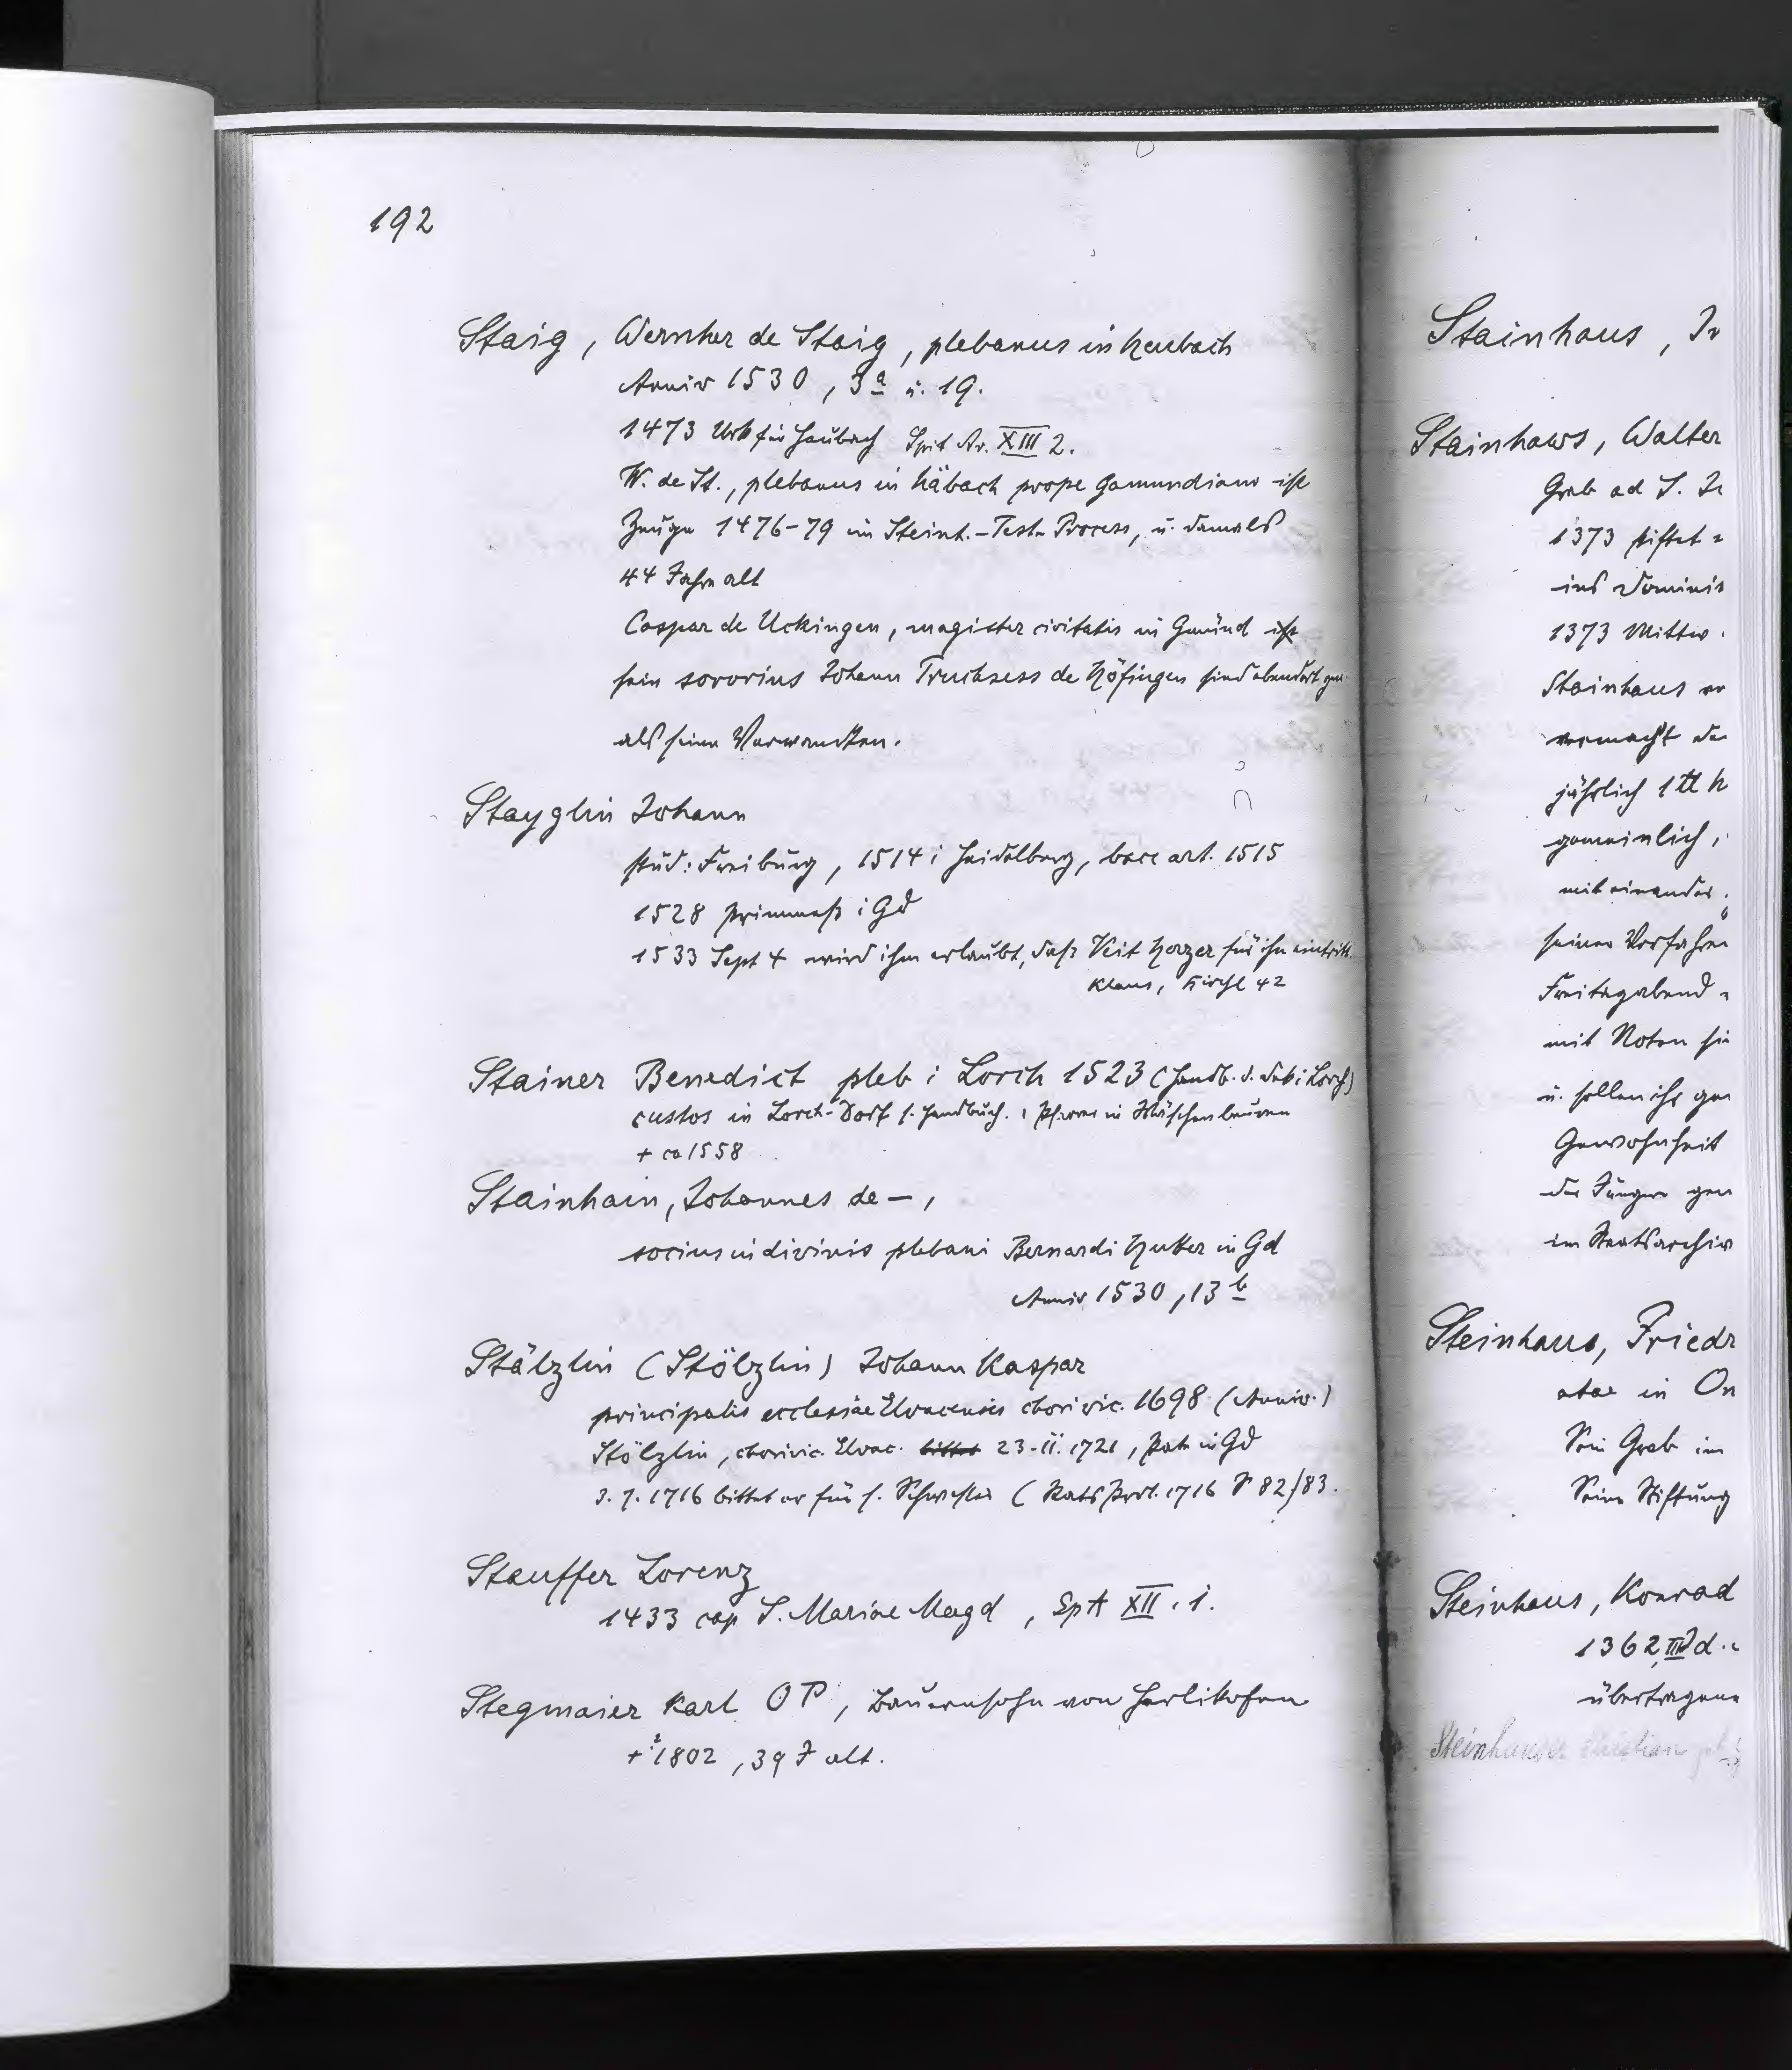 192
Staig, Wernher de Staig, plebanus in Heubach
Anniv 1530, 3a u. 19.
1473 Urk für Heubach Spit Ar. XIII 2.
W. de St., plebanus in Häbach prope Gamundiam ist
Zeuge 1476-79 im Steinh.-Test-Process, u. damals
44 Jahre alt
Caspar de Uckingen, magister civitatis in Gmünd ist
sein sororius Johann Truchsess de Höfingen sind ebendort gen
als seine Verwandten.
Stayglin Johann
stud: Freiburg, 1514 i Heidelberg, bacc art. 1515
1528 Primmess i Gd
1533 Sept 4 wird ihm erlaubt, dass Veit Herzer für ihn eintritt.
Klaus, Kirchl 42
Stainer Benedict pleb i Lorch 1523 (Handb. d. Deb i Lorch)
custos in Lorch-Dorf s. Handbuch. Pfarrer in Wäschenbeuren
+ ca 1558
Stainhain, Johannes de -,
socius in divinis plebani Bernardi Hutter in Gd
Anniv 1530, 13b
Stälzlin (Stölzlin) Johann Kaspar
principalis ecclesiae Elvacensis chori vic. 1698 (Anniv.)
Stölzlin, chorivic. Elvac. bittet 23.II.1721, Pat in Gd
3.7.1716 bittet er für s. Schwester (RatsProt. 1716 S 82/83.
Stauffer Lorenz
1433 cap S. Mariae Magd, SpA XII.1.
Stegmaier Karl OP, Bauernsohn von Herlikofen
+ 1802, 39 J alt.
Stainhaus, Jo
Stainhaws, Walter
Grab ad S.
1373 stiftet
ins Dominik
1373 Mittw.
Stainhaus
vermacht
jährlich 1 tt h
gemeinlich,
mit einander
seiner Vorfahren
Freitagabend
mit Noten
u. sollen ihr
Gewohnheit
der Jünger gen
im Staatsarchiv
Steinhaus, Friedr
in
Sein Grab im
Seine Stiftung
Steinhaus, Konrad
1362 III d.
übertragene
Steinhauser Christian